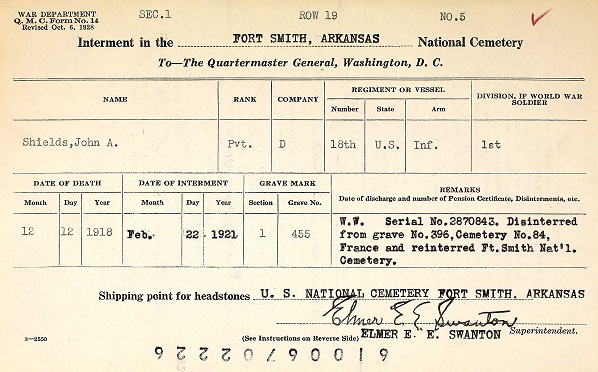 WAR DEPARTMENT
Q. M. C. Form No. 14
Revised Oct. 6, 1928
SEC.1 ROW 19 NO.5
Interment in the FORT SMITH, ARKANSAS National Cemetery
To—The Quartermaster General, Washington, D. C.
NAME RANK COMPANY REGIMENT OR VESSEL DIVISION, IF WORLD WAR SOLDIER
Number State Arm
Shields,John A. Pvt. D 18th U.S. Inf. 1st
DATE OF DEATH DATE OF INTERMENT GRAVE MARK REMARKS
Month Day Year Month Day Year Section Grave No. Date of discharge and number of Pension Certificate, Disinterments, etc.
12 12 1918 Feb. 22 1921 1 455
W.W. Serial No.2870843. Disinterred
from grave No.396,Cemetery No.84,
France and reinterred Ft.Smith Nat'l.
Cemetery.
Shipping point for headstones U. S. NATIONAL CEMETERY FORT SMITH. ARKANSAS
Elmer E. E Swanton
ELMER E. E. SWANTON Superintendent.
3—2550 (See Instructions on Reverse Side)